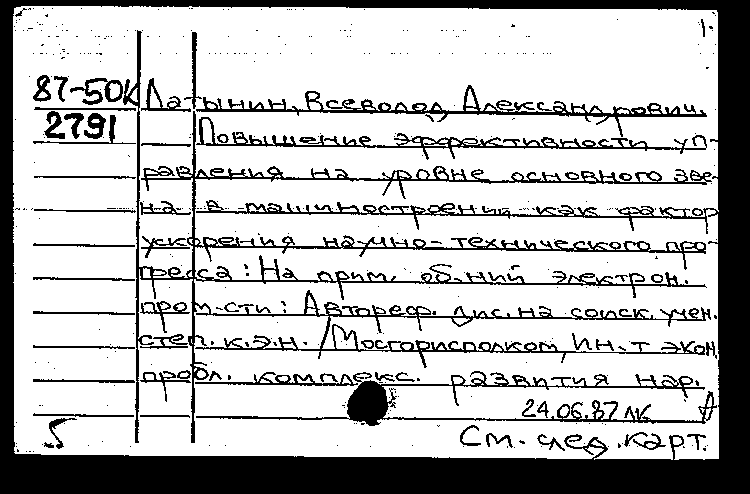 1.
87-50К Латынин, Всеволод Александрович.
2791 Повышение эффективности уп-
равления на уровне основного зве-
на в машиностроении как фактор
ускорения научно-технического про-
гресса: На прим. об-ний электрон.
пром-сти: Автореф. дис. на соиск. учен.
степ. к.э.н. /Мосгорисполком, Ин-т экон.
пробл. комплекс. развития нар.
24.06.87 ЛК А
5 См. след. карт.